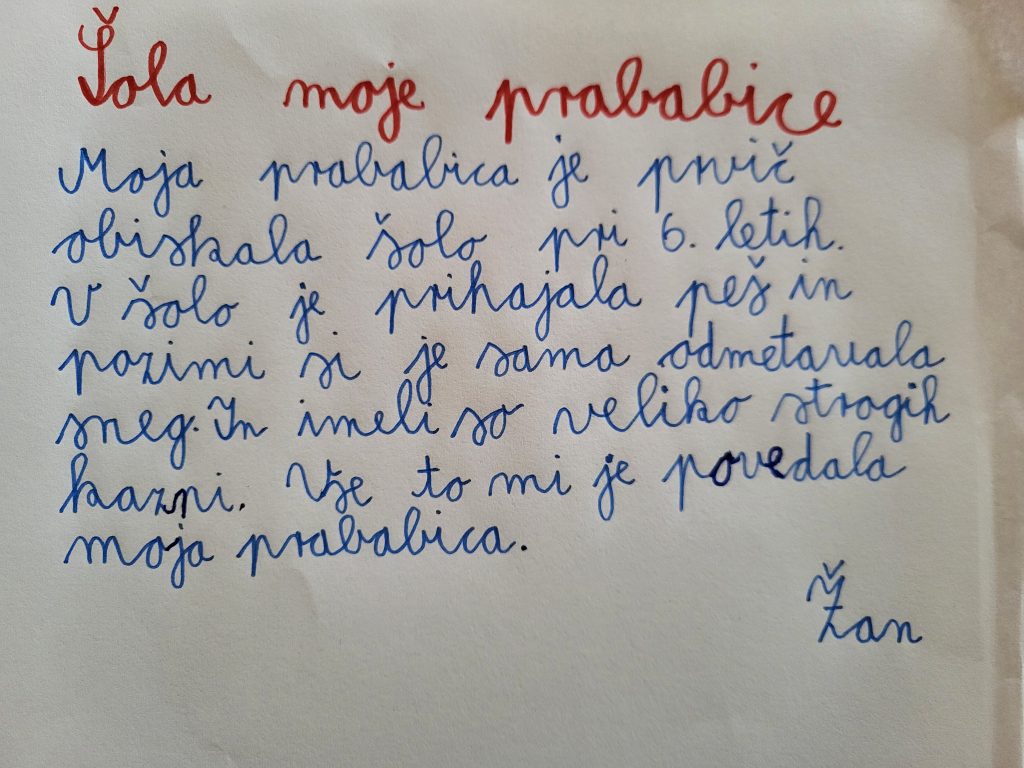 Šola moje prababice
Moja prababica je prvič
obiskala šolo pri 6. letih.
V šolo je prihajala peš in
pozimi si je sama odmetavala
sneg. In imeli so veliko strogih
kazni. Vse to mi je povedala
moja prababica.
Žan